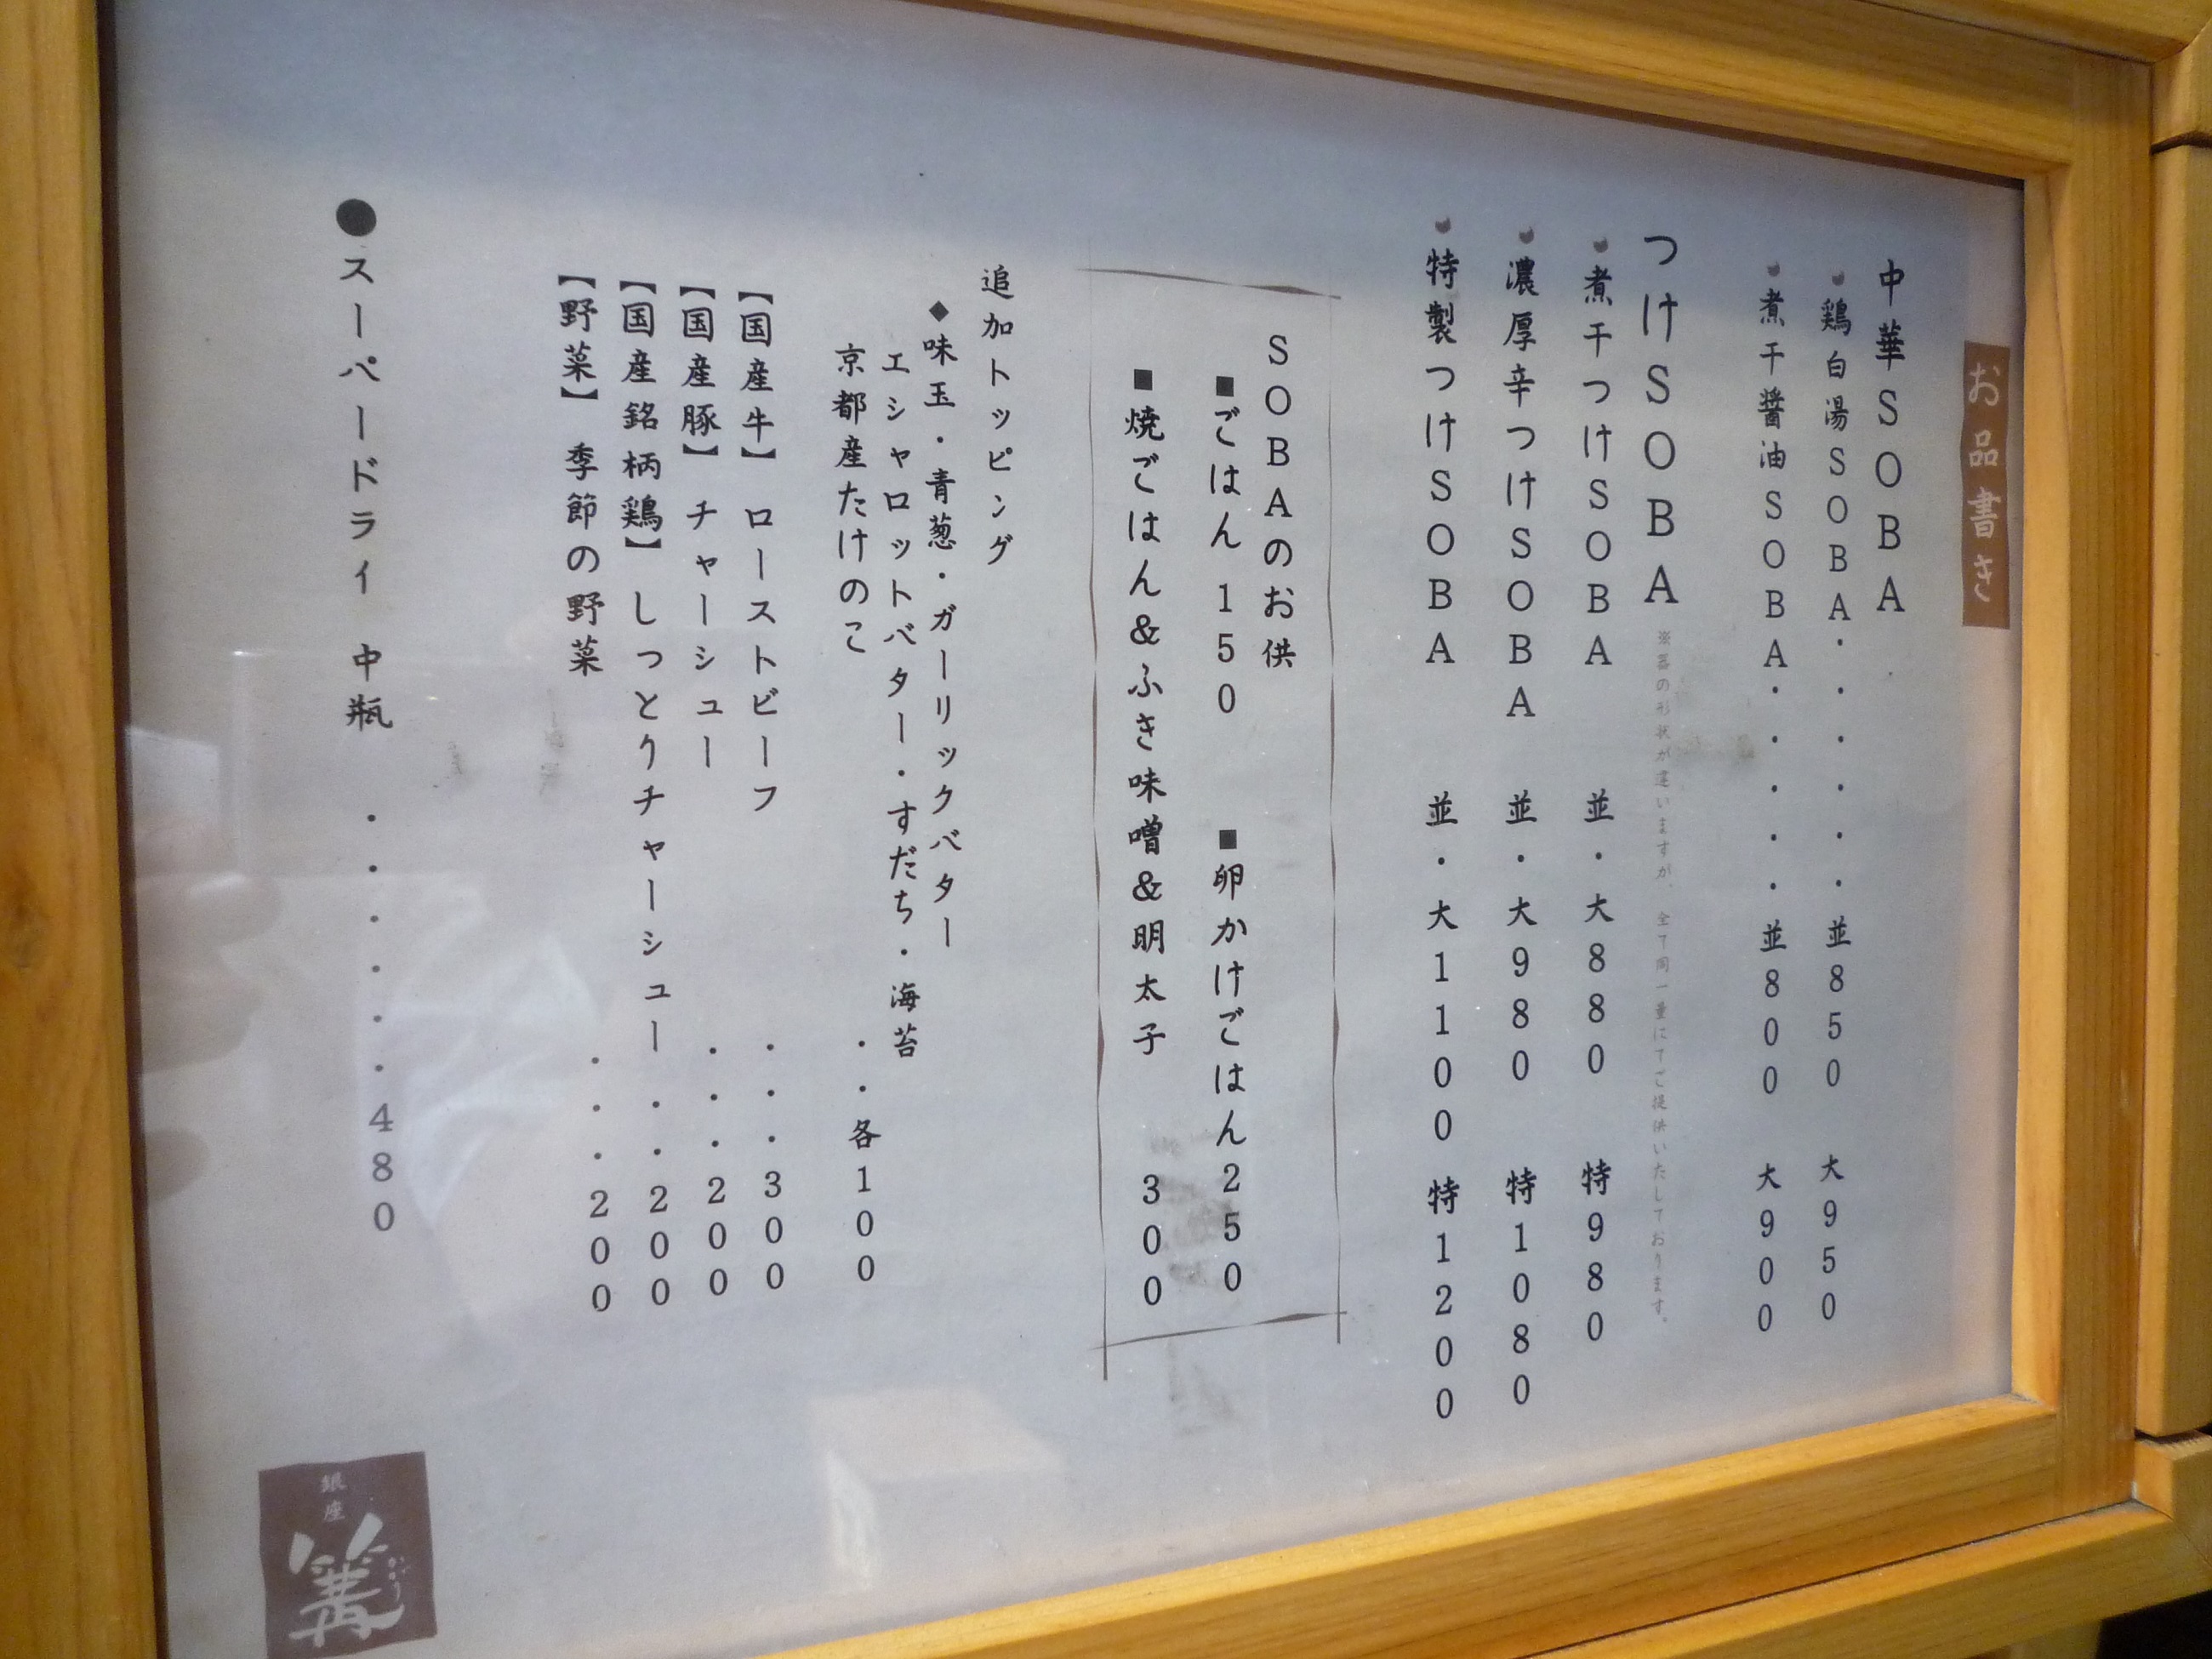 お品書き
中華SOBA
鶏白湯SOBA・・・・・・並850 大950
煮干醤油SOBA・・・・・並800 大900
つけSOBA ※器の形状が違いますが、全て同一量にてご提供いたしております。
煮干つけSOBA 並・大880 特980
濃厚辛つけSOBA 並・大980 特1080
特製つけSOBA 並・大1100 特1200
SOBAのお供
■ごはん 150 ■卵かけごはん250
■焼ごはん&ふき味噌&明太子 300
追加トッピング
◆味玉・青葱・ガーリックバター
エシャロットバター・すだち・海苔
京都産たけのこ ・・各100
【国産牛】 ローストビーフ ・・・300
【国産豚】 チャーシュー ・・・200
【国産銘柄鶏】しっとりチャーシュー・・200
【野菜】 季節の野菜 ・・・200
●スーパードライ 中瓶 ・・・・・・480
銀座
篝
かがり